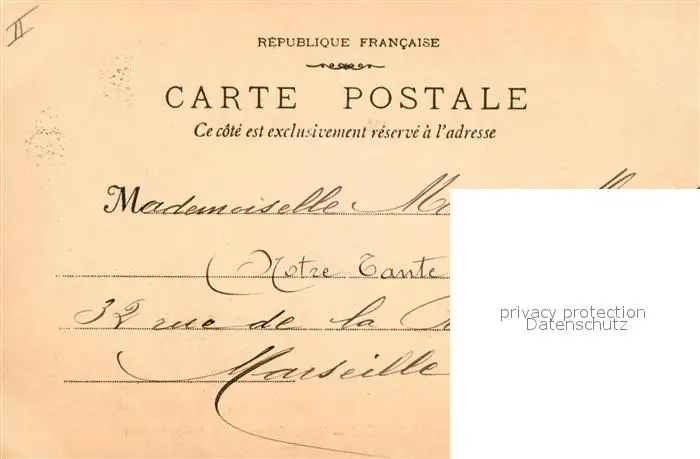 II
RÉPUBLIQUE FRANÇAISE
CARTE POSTALE
Ce côté est exclusivement réservé à l'adresse
Mademoiselle
(Notre Tante
32 rue de la
Marseille
privacy protection
Datenschutz